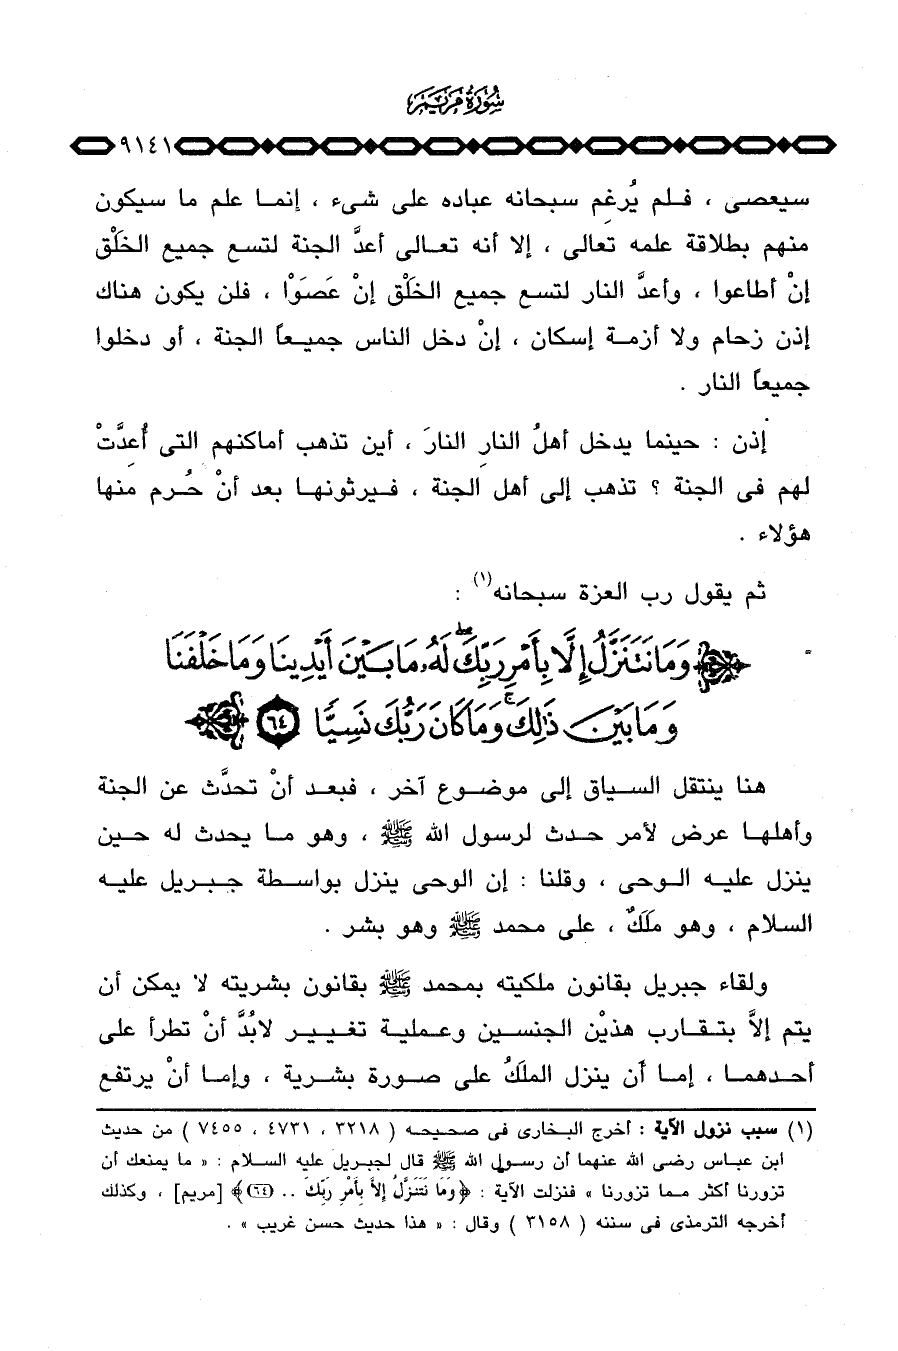 سُورَةُ مَرْيَمَ
٩١٤١
سيعصى ، فلم يُرغِم سبحانه عباده على شىء ، إنما علم ما سيكون
منهم بطلاقة علمه تعالى ، إلا أنه تعالى أعدَّ الجنة لتسع جميع الخَلْق
إنْ أطاعوا ، وأعدَّ النار لتسع جميع الخَلْق إنْ عَصَوْا ، فلن يكون هناك
إذن زحام ولا أزمة إسكان ، إنْ دخل الناس جميعاً الجنة ، أو دخلوا
جميعاً النار .
إذن : حينما يدخل أهلُ النارِ النارَ ، أين تذهب أماكنهم التى أُعدَّتْ
لهم فى الجنة ؟ تذهب إلى أهل الجنة ، فيرثونها بعد أنْ حُرِم منها
هؤلاء .
ثم يقول رب العزة سبحانه(١) :
وَمَا نَتَنَزَّلُ إِلَّا بِأَمْرِ رَبِّكَ ۖ لَهُ مَا بَيْنَ أَيْدِينَا وَمَا خَلْفَنَا
وَمَا بَيْنَ ذَٰلِكَ ۚ وَمَا كَانَ رَبُّكَ نَسِيًّا ٦٤
هنا ينتقل السياق إلى موضوع آخر ، فبعد أنْ تحدَّث عن الجنة
وأهلها عرض لأمر حدث لرسول الله ﷺ ، وهو ما يحدث له حين
ينزل عليه الوحى ، وقلنا : إن الوحى ينزل بواسطة جبريل عليه
السلام ، وهو ملَكٌ ، على محمد ﷺ وهو بشر .
ولقاء جبريل بقانون ملكيته بمحمد ﷺ بقانون بشريته لا يمكن أن
يتم إلاَّ بتقارب هذيْن الجنسين وعملية تغيير لابُدَّ أنْ تطرأ على
أحدهما ، إما أن ينزل الملَكُ على صورة بشرية ، وإما أنْ يرتفع
(١) سبب نزول الآية : أخرج البخارى فى صحيحه ( ٣٢١٨ ، ٤٧٣١ ، ٧٤٥٥ ) من حديث
ابن عباس رضى الله عنهما أن رسول الله ﷺ قال لجبريل عليه السلام : « ما يمنعك أن
تزورنا أكثر مما تزورنا » فنزلت الآية : ﴿وَمَا نَتَنَزَّلُ إِلاَّ بِأَمْرِ رَبِّكَ .. (٦٤)﴾ [مريم] ، وكذلك
أخرجه الترمذى فى سننه ( ٣١٥٨ ) وقال : « هذا حديث حسن غريب » .